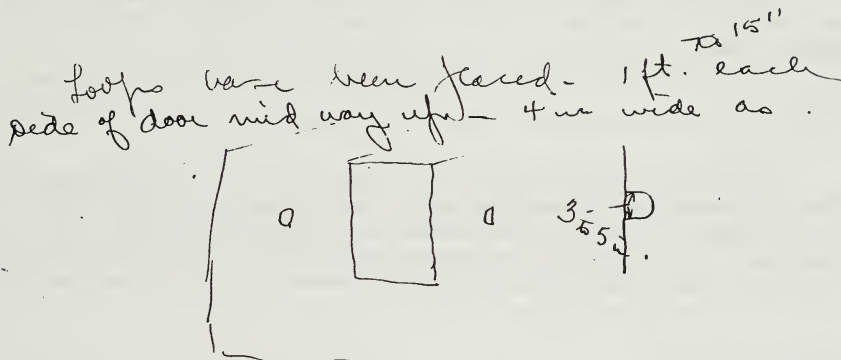 to 15"
Loops have been placed - 1 ft. each
side of door mid way up - 4 in wide as .
3 to 5 in.